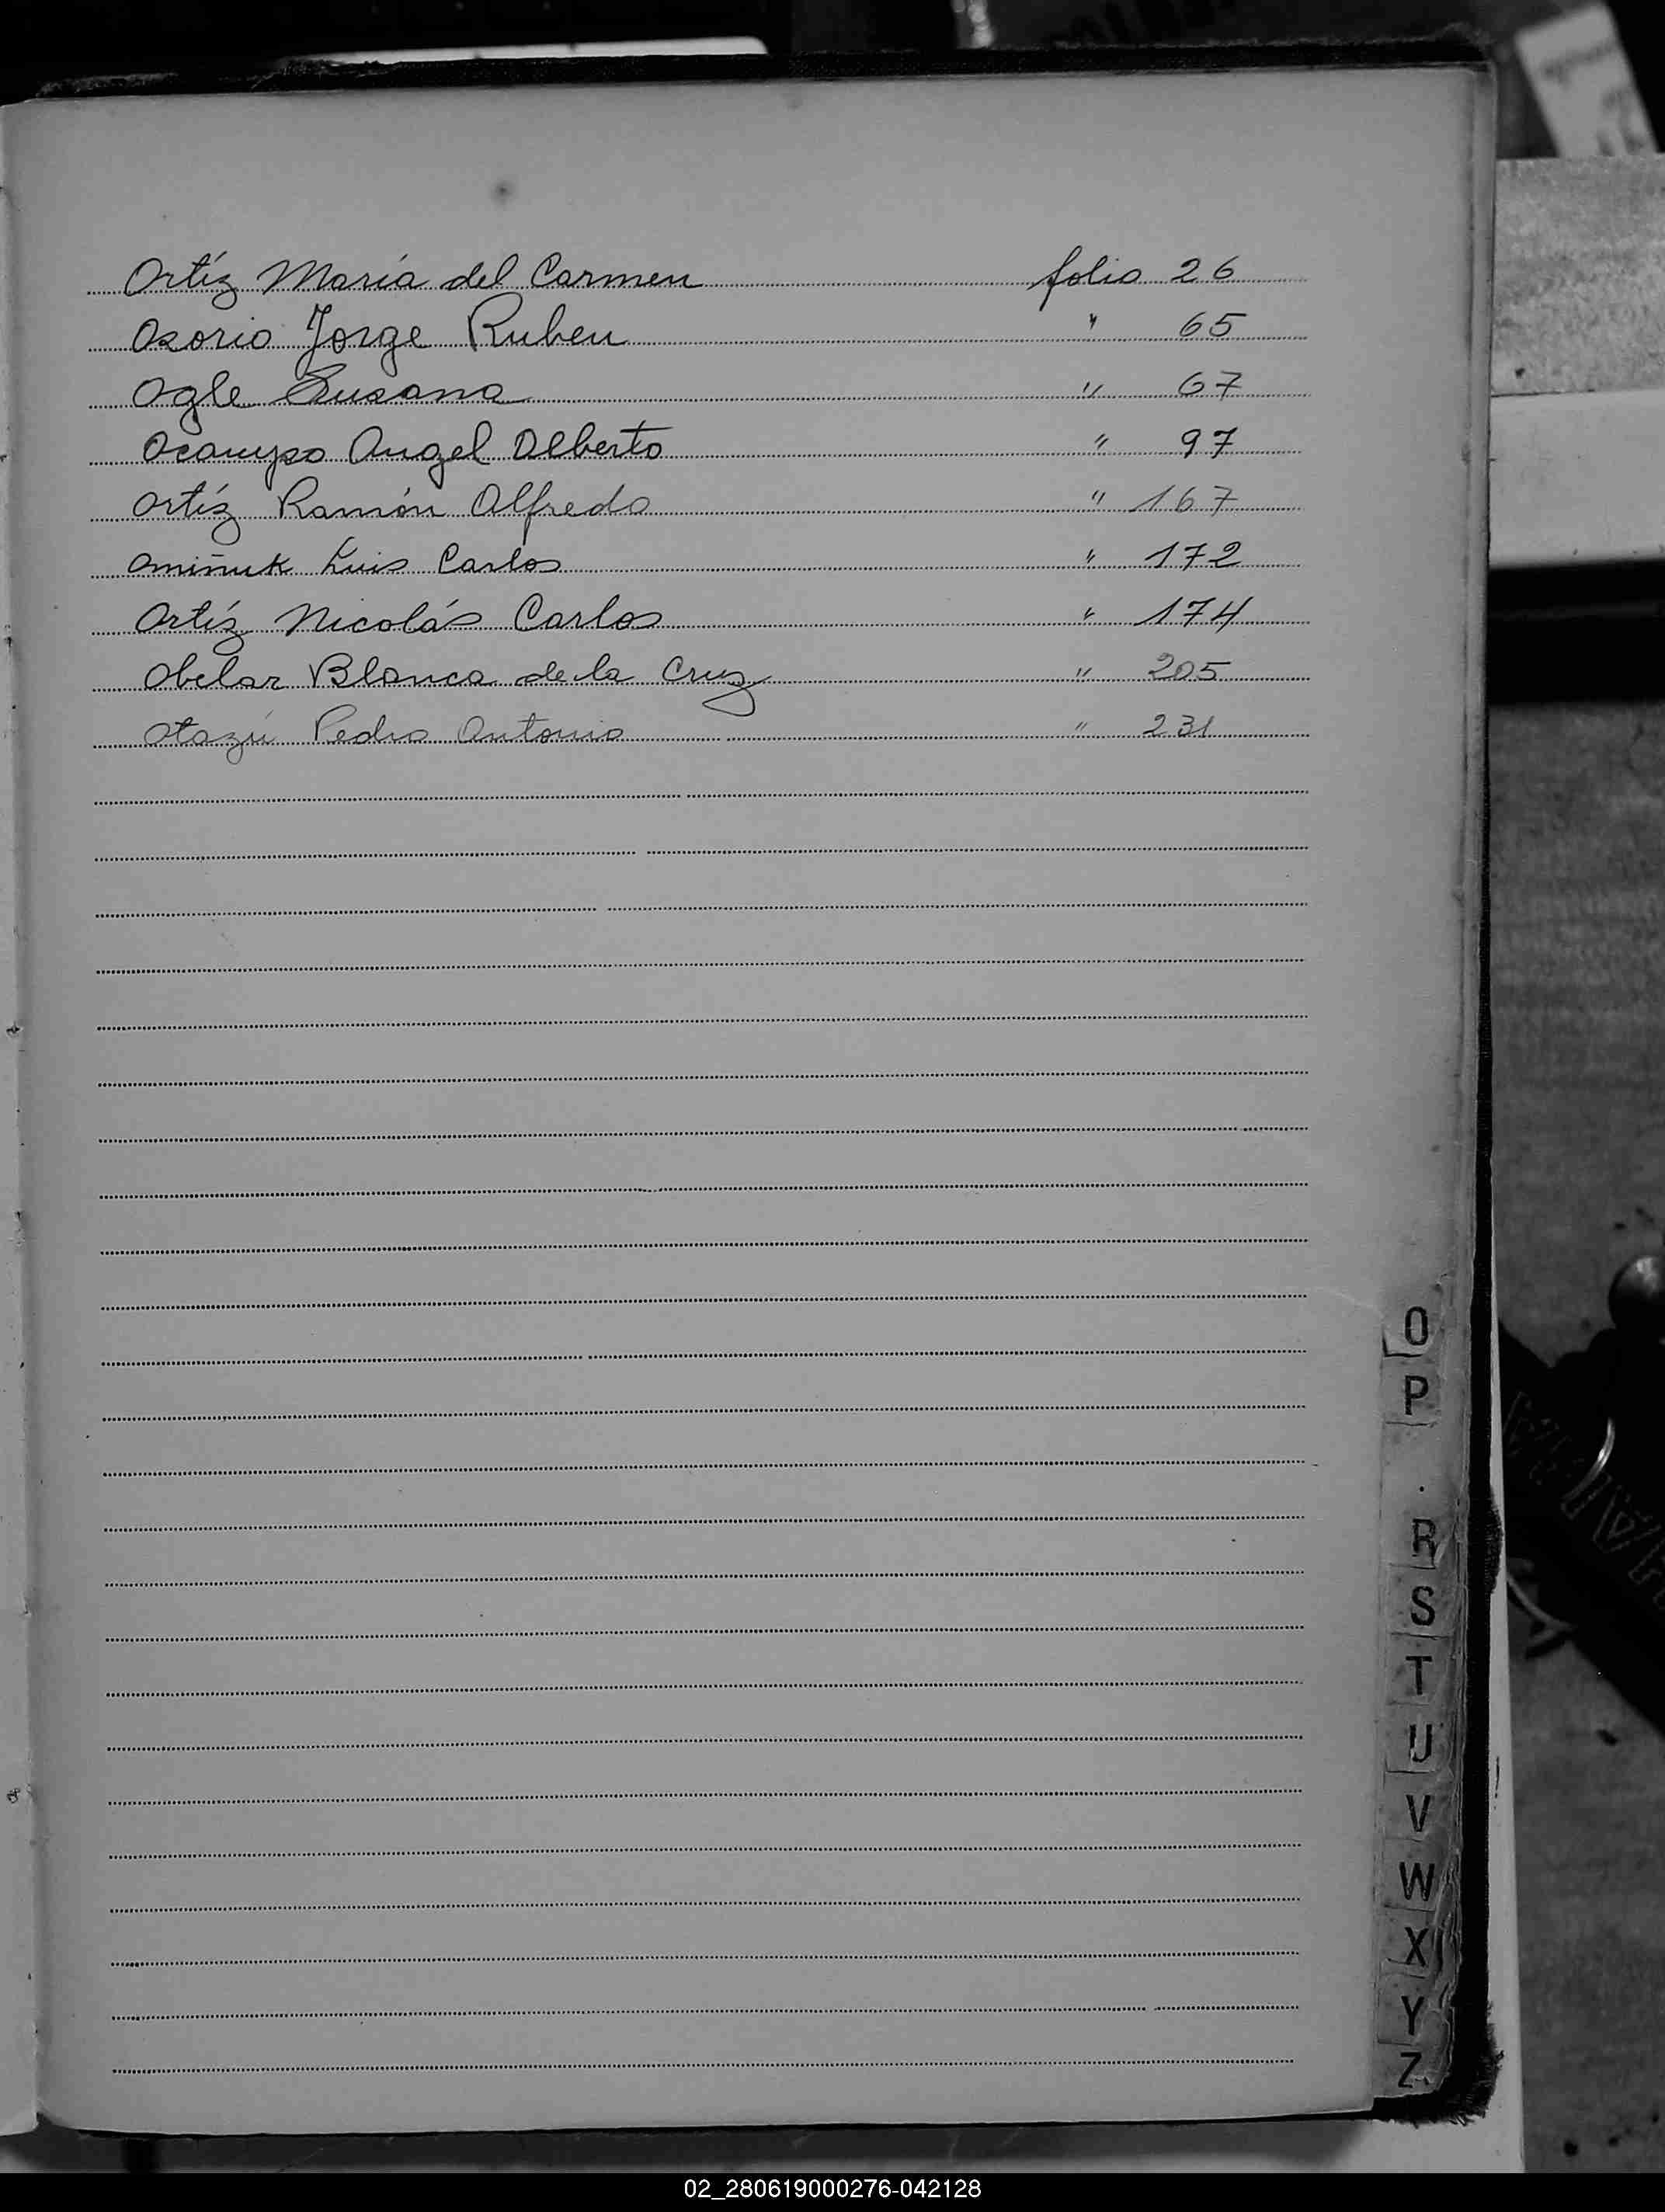 Ortíz María del Carmen folio 26
Osorio Jorge Ruben " 65
Ogle Susana " 67
Ocampo Angel Alberto " 97
Ortíz Ramón Alfredo " 167
Omiñuk Luis Carlos " 172
Ortíz Nicolás Carlos " 174
Obelar Blanca de la Cruz " 205
Otazú Pedro Antonio " 231
O
P
R
S
T
U
V
W
X
Y
Z
02_280619000276-042128